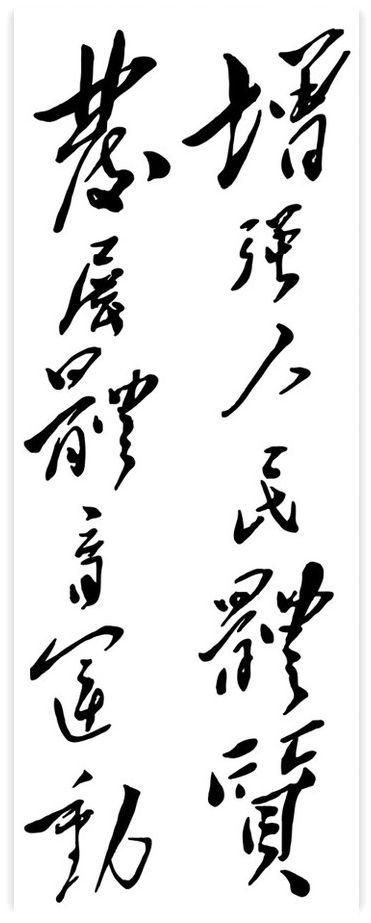 增强人民體質
發展體育運動